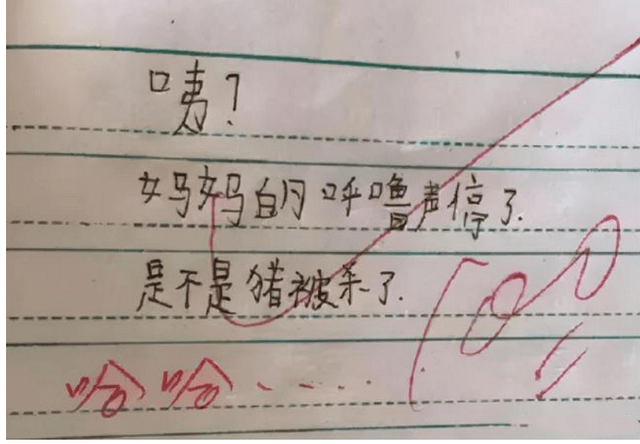 咦？
妈妈的呼噜声停了.
是不是猪被杀了.
哈哈.....
100